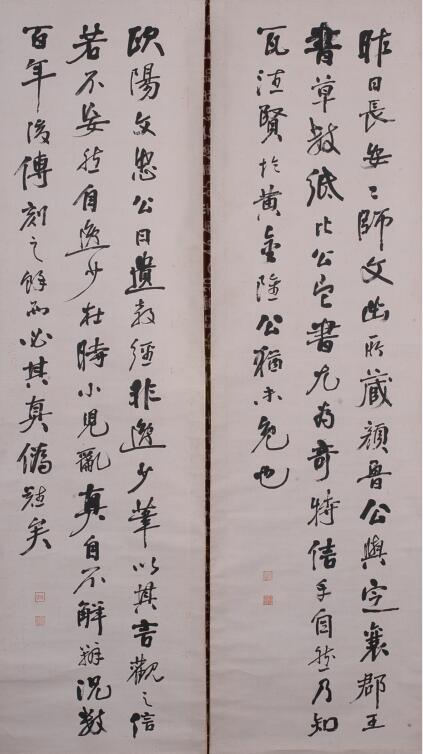 昨日長安〻師文出所藏顏魯公與定襄郡王
書草數紙比公它書尤為奇特信手自然乃知
瓦注賢於黃金雖公猶未免也
歐陽文忠公曰遺教經非逸少筆以其言觀之信
若不妄然自逸少在時小兒亂真自不解辨況數
百年後傳刻之餘而必其真僞難矣